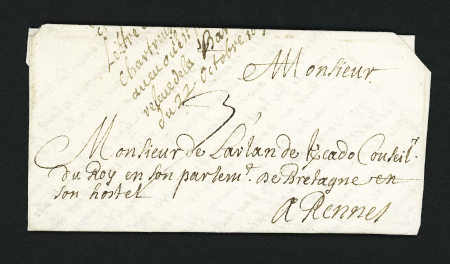 Lettre
Chartreu
du 22 Octobre
Monsieur
3
Monsieur de Larlan de Kcado Conseil.r
du Roy en son parlem.t de Bretagne en
son hostel
A Rennes